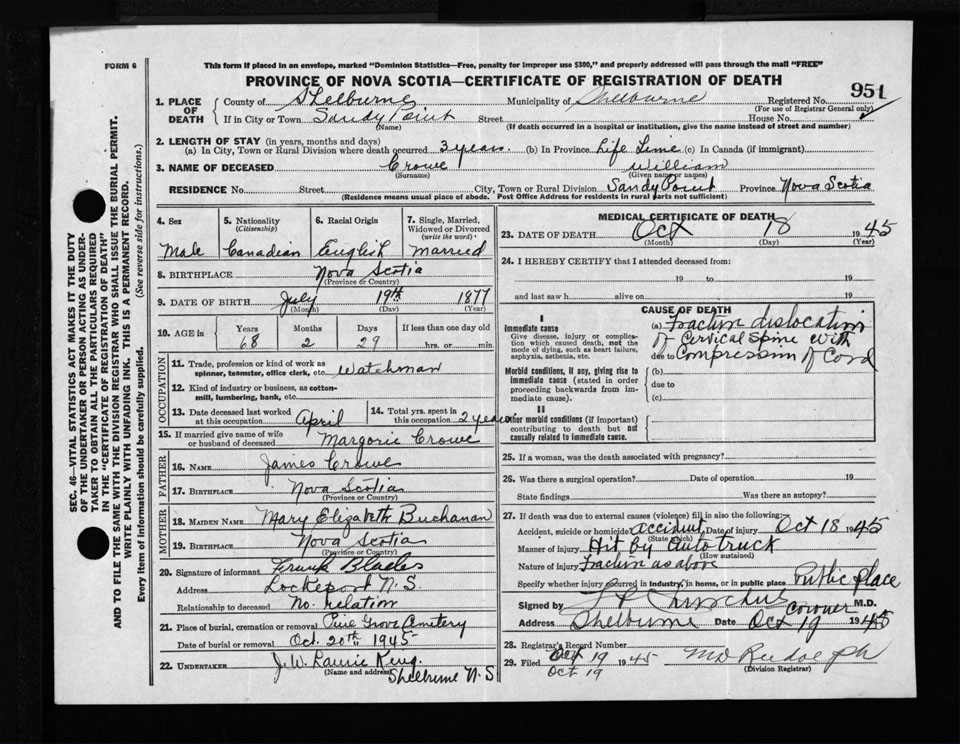 FORM 6
This form if placed in an envelope, marked "Dominion Statistics—Free, penalty for improper use $300," and properly addressed will pass through the mail "FREE"
PROVINCE OF NOVA SCOTIA—CERTIFICATE OF REGISTRATION OF DEATH
951
1. PLACE OF DEATH County of Shelburne Municipality of Shelbourne Registered No.
(For use of Registrar General only)
If in City or Town Sandy Point Street House No.
(Name) (If death occurred in a hospital or institution, give the name instead of street and number)
2. LENGTH OF STAY (in years, months and days)
(a) In City, Town or Rural Division where death occurred 3 years (b) In Province Life Time (c) In Canada (if immigrant)
3. NAME OF DECEASED Crowe William
(Surname) (Given name or names)
RESIDENCE No. Street City, Town or Rural Division Sandy Point Province Nova Scotia
(Residence means usual place of abode. Post Office Address for residents in rural parts not sufficient)
4. Sex Male
5. Nationality (Citizenship) Canadian
6. Racial Origin English
7. Single, Married, Widowed or Divorced (write the word) Married
8. BIRTHPLACE Nova Scotia
(Province or Country)
9. DATE OF BIRTH July 19th 1877
(Month) (Day) (Year)
10. AGE in Years Months Days If less than one day old
68 2 29 hrs. or min.
OCCUPATION
11. Trade, profession or kind of work as
spinner, teamster, office clerk, etc. Watchman
12. Kind of industry or business, as cotton-
mill, lumbering, bank, etc.
13. Date deceased last worked
at this occupation April
14. Total yrs. spent in
this occupation 2 years
15. If married give name of wife
or husband of deceased Margorie Crowe
FATHER
16. NAME James Crowe
17. BIRTHPLACE Nova Scotia
(Province or Country)
MOTHER
18. MAIDEN NAME Mary Elizabeth Buchanan
19. BIRTHPLACE Nova Scotia
(Province or Country)
20. Signature of informant Frank Blades
Address Lockeport N.S
Relationship to deceased No. relation
21. Place of burial, cremation or removal Pine Grove Cemetery
Date of burial or removal Oct. 20th 1945
22. UNDERTAKER J.W. Laurie King.
(Name and address) Shelburne N.S
MEDICAL CERTIFICATE OF DEATH
23. DATE OF DEATH Oct 18 1945
(Month) (Day) (Year)
24. I HEREBY CERTIFY that I attended deceased from:
19 to 19
and last saw h alive on 19
CAUSE OF DEATH
I
Immediate cause
Give disease, injury or complication which caused death, not the mode of dying, such as heart failure, asphyxia, asthenia, etc.
(a) Fraction dislocation
of Cervical Spine with
due to Compression of Cord
Morbid conditions, if any, giving rise to immediate cause (stated in order proceeding backwards from immediate cause).
(b)
due to
(c)
II
Other morbid conditions (if important) contributing to death but not causally related to immediate cause.
25. If a woman, was the death associated with pregnancy?
26. Was there a surgical operation? Date of operation 19
State findings Was there an autopsy?
27. If death was due to external causes (violence) fill in also the following:
Accident, suicide or homicide accident Date of injury Oct 18 1945
(State which)
Manner of injury Hit by auto truck
(How sustained)
Nature of injury Fraction as above
Specify whether injury occurred in industry, in home, or in public place Public place
Signed by Coroner M.D.
Address Shelburne Date Oct 19 1945
28. Registrar's Record Number
29. Filed Oct 19 1945 M D Rudolph
Oct 19 (Division Registrar)
SEC. 46—VITAL STATISTICS ACT MAKES IT THE DUTY
OF THE UNDERTAKER OR PERSON ACTING AS UNDER-
TAKER TO OBTAIN ALL THE PARTICULARS REQUIRED
IN THE "CERTIFICATE OF REGISTRATION OF DEATH"
AND TO FILE THE SAME WITH THE DIVISION REGISTRAR WHO SHALL ISSUE THE BURIAL PERMIT.
WRITE PLAINLY WITH UNFADING INK. THIS IS A PERMANENT RECORD.
Every item of information should be carefully supplied. (See reverse side for instructions.)